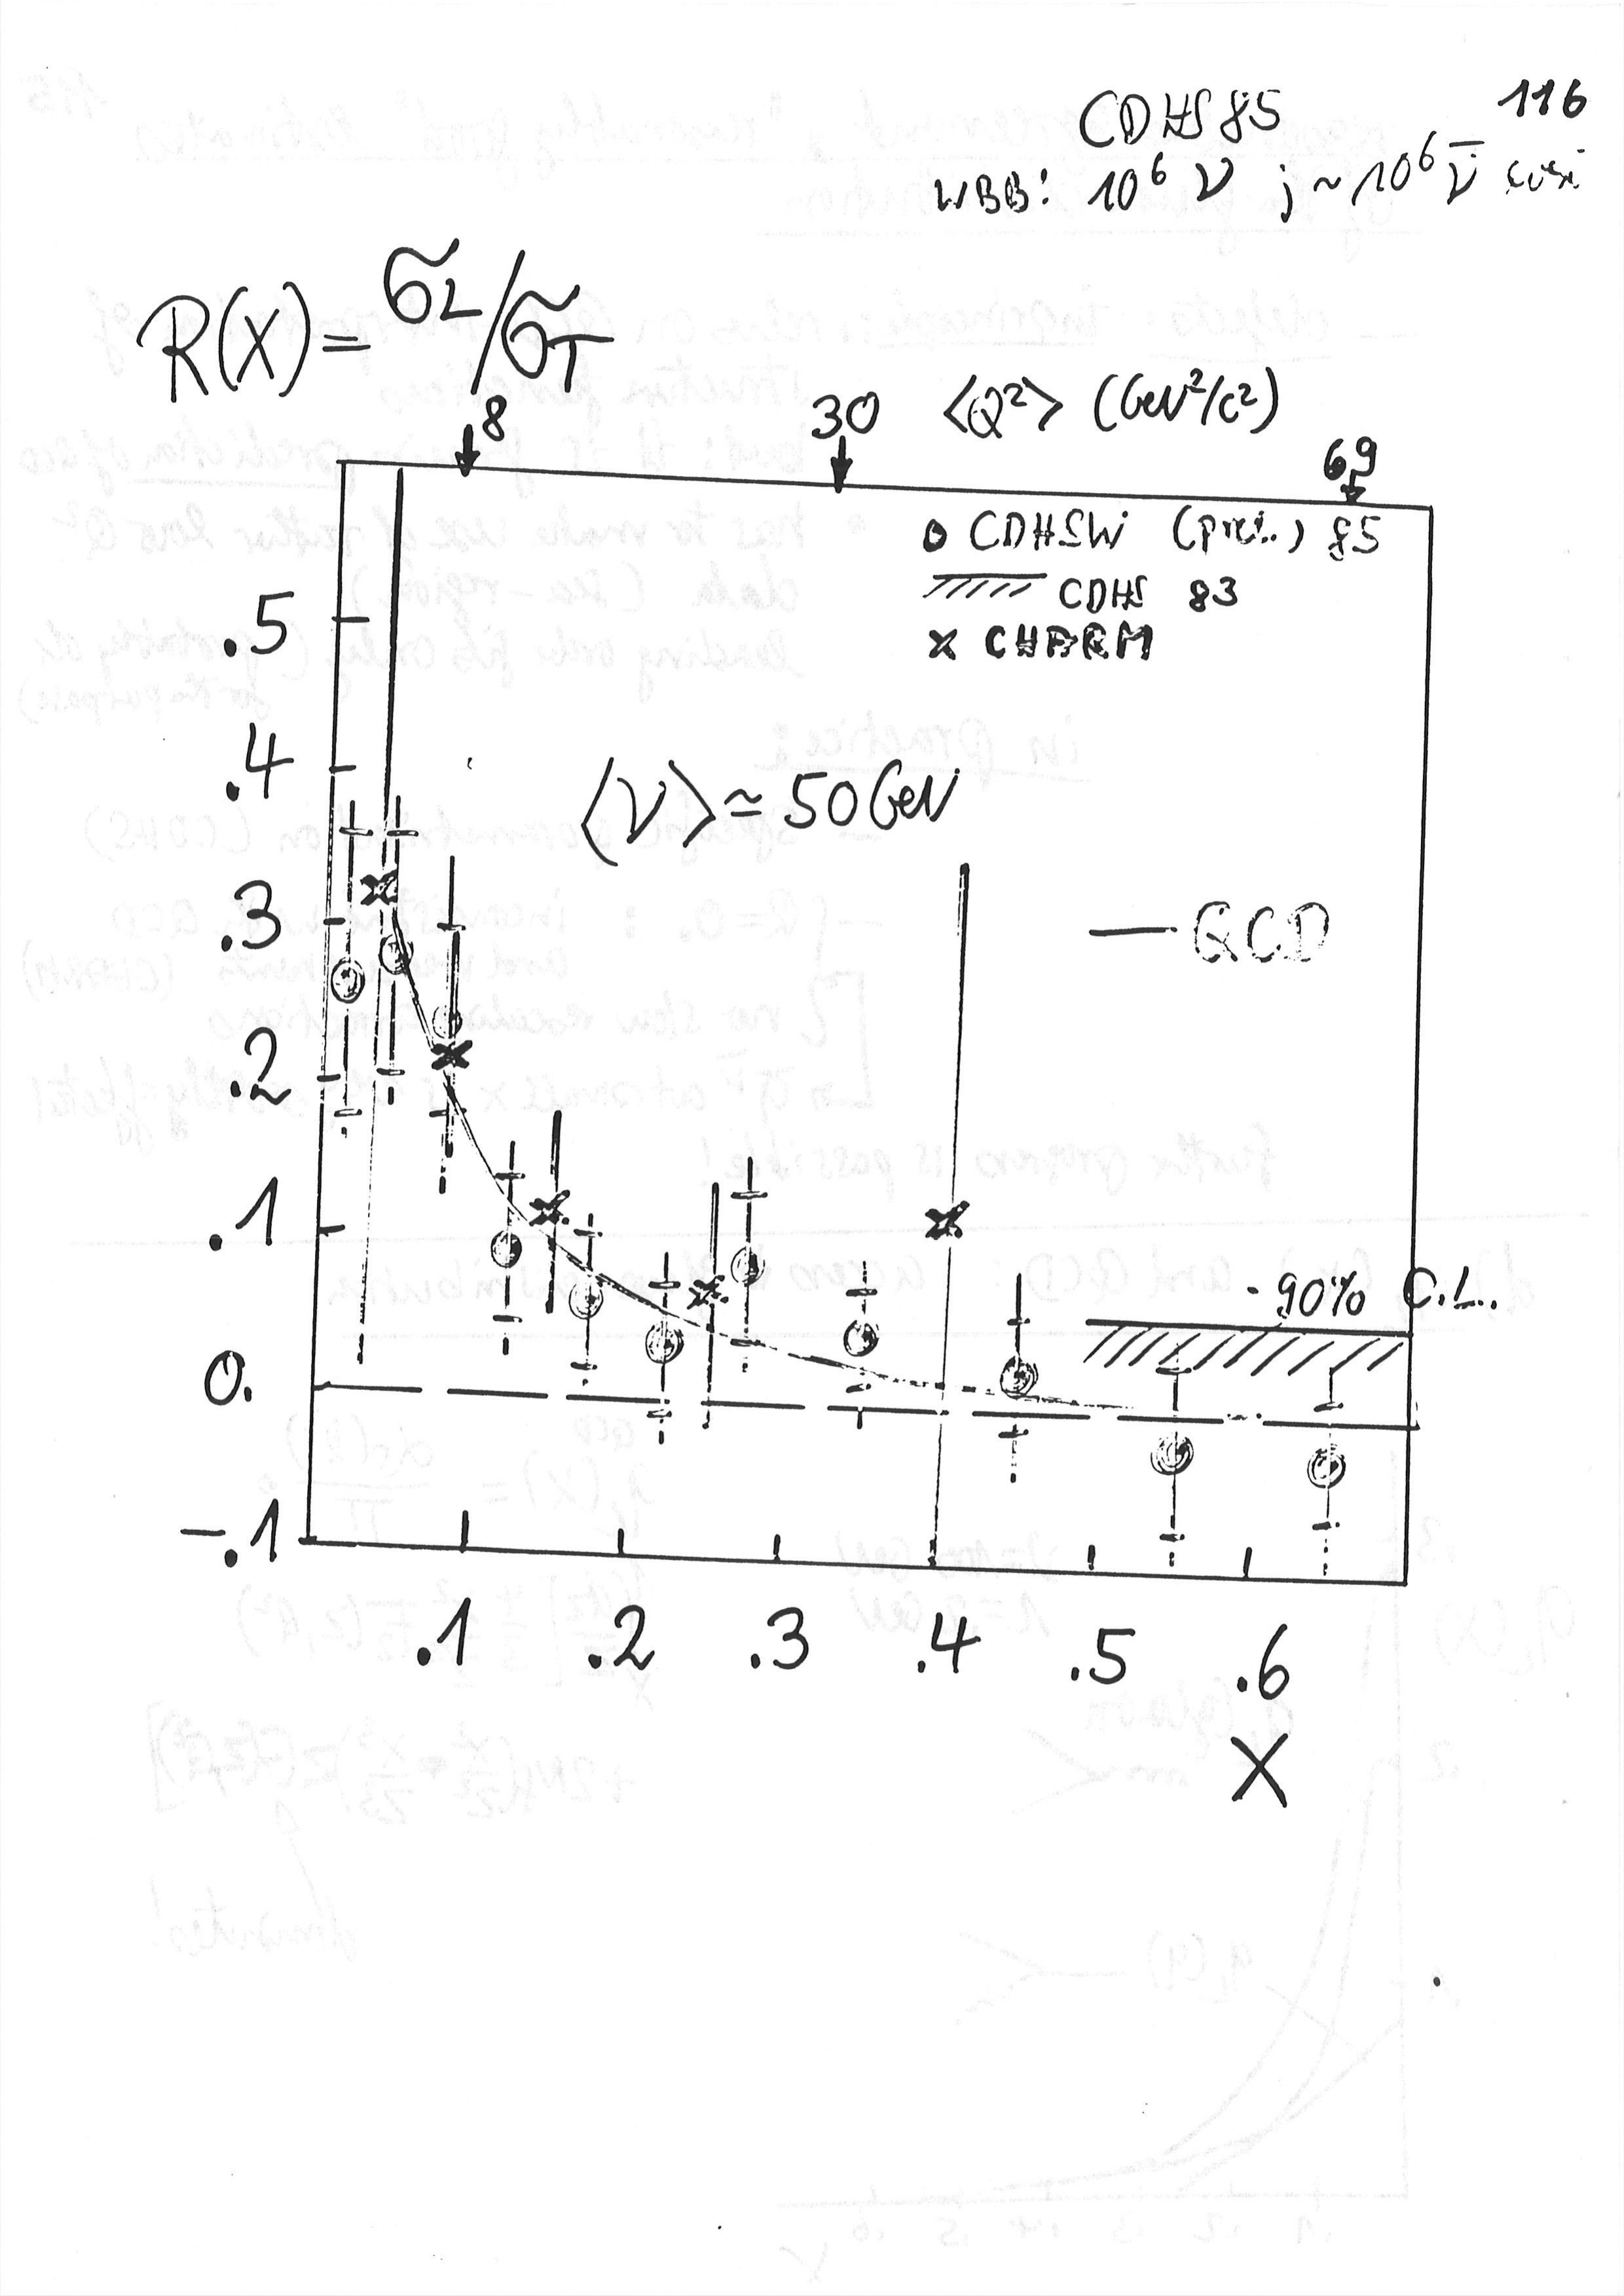 116
CDHS 85
WBB: 10⁶ ν ; ~10⁶ ν̄
R(X) = σL/σT
8 30 <Q²> (GeV²/c²)
69
CDHSW (prel.) 85
CDHS 83
x CHARM
.5
.4
<ν> ≃ 50 GeV
.3
— QCD
.2
.1
90% C.L.
0.
-.1
.1 .2 .3 .4 .5 .6
X